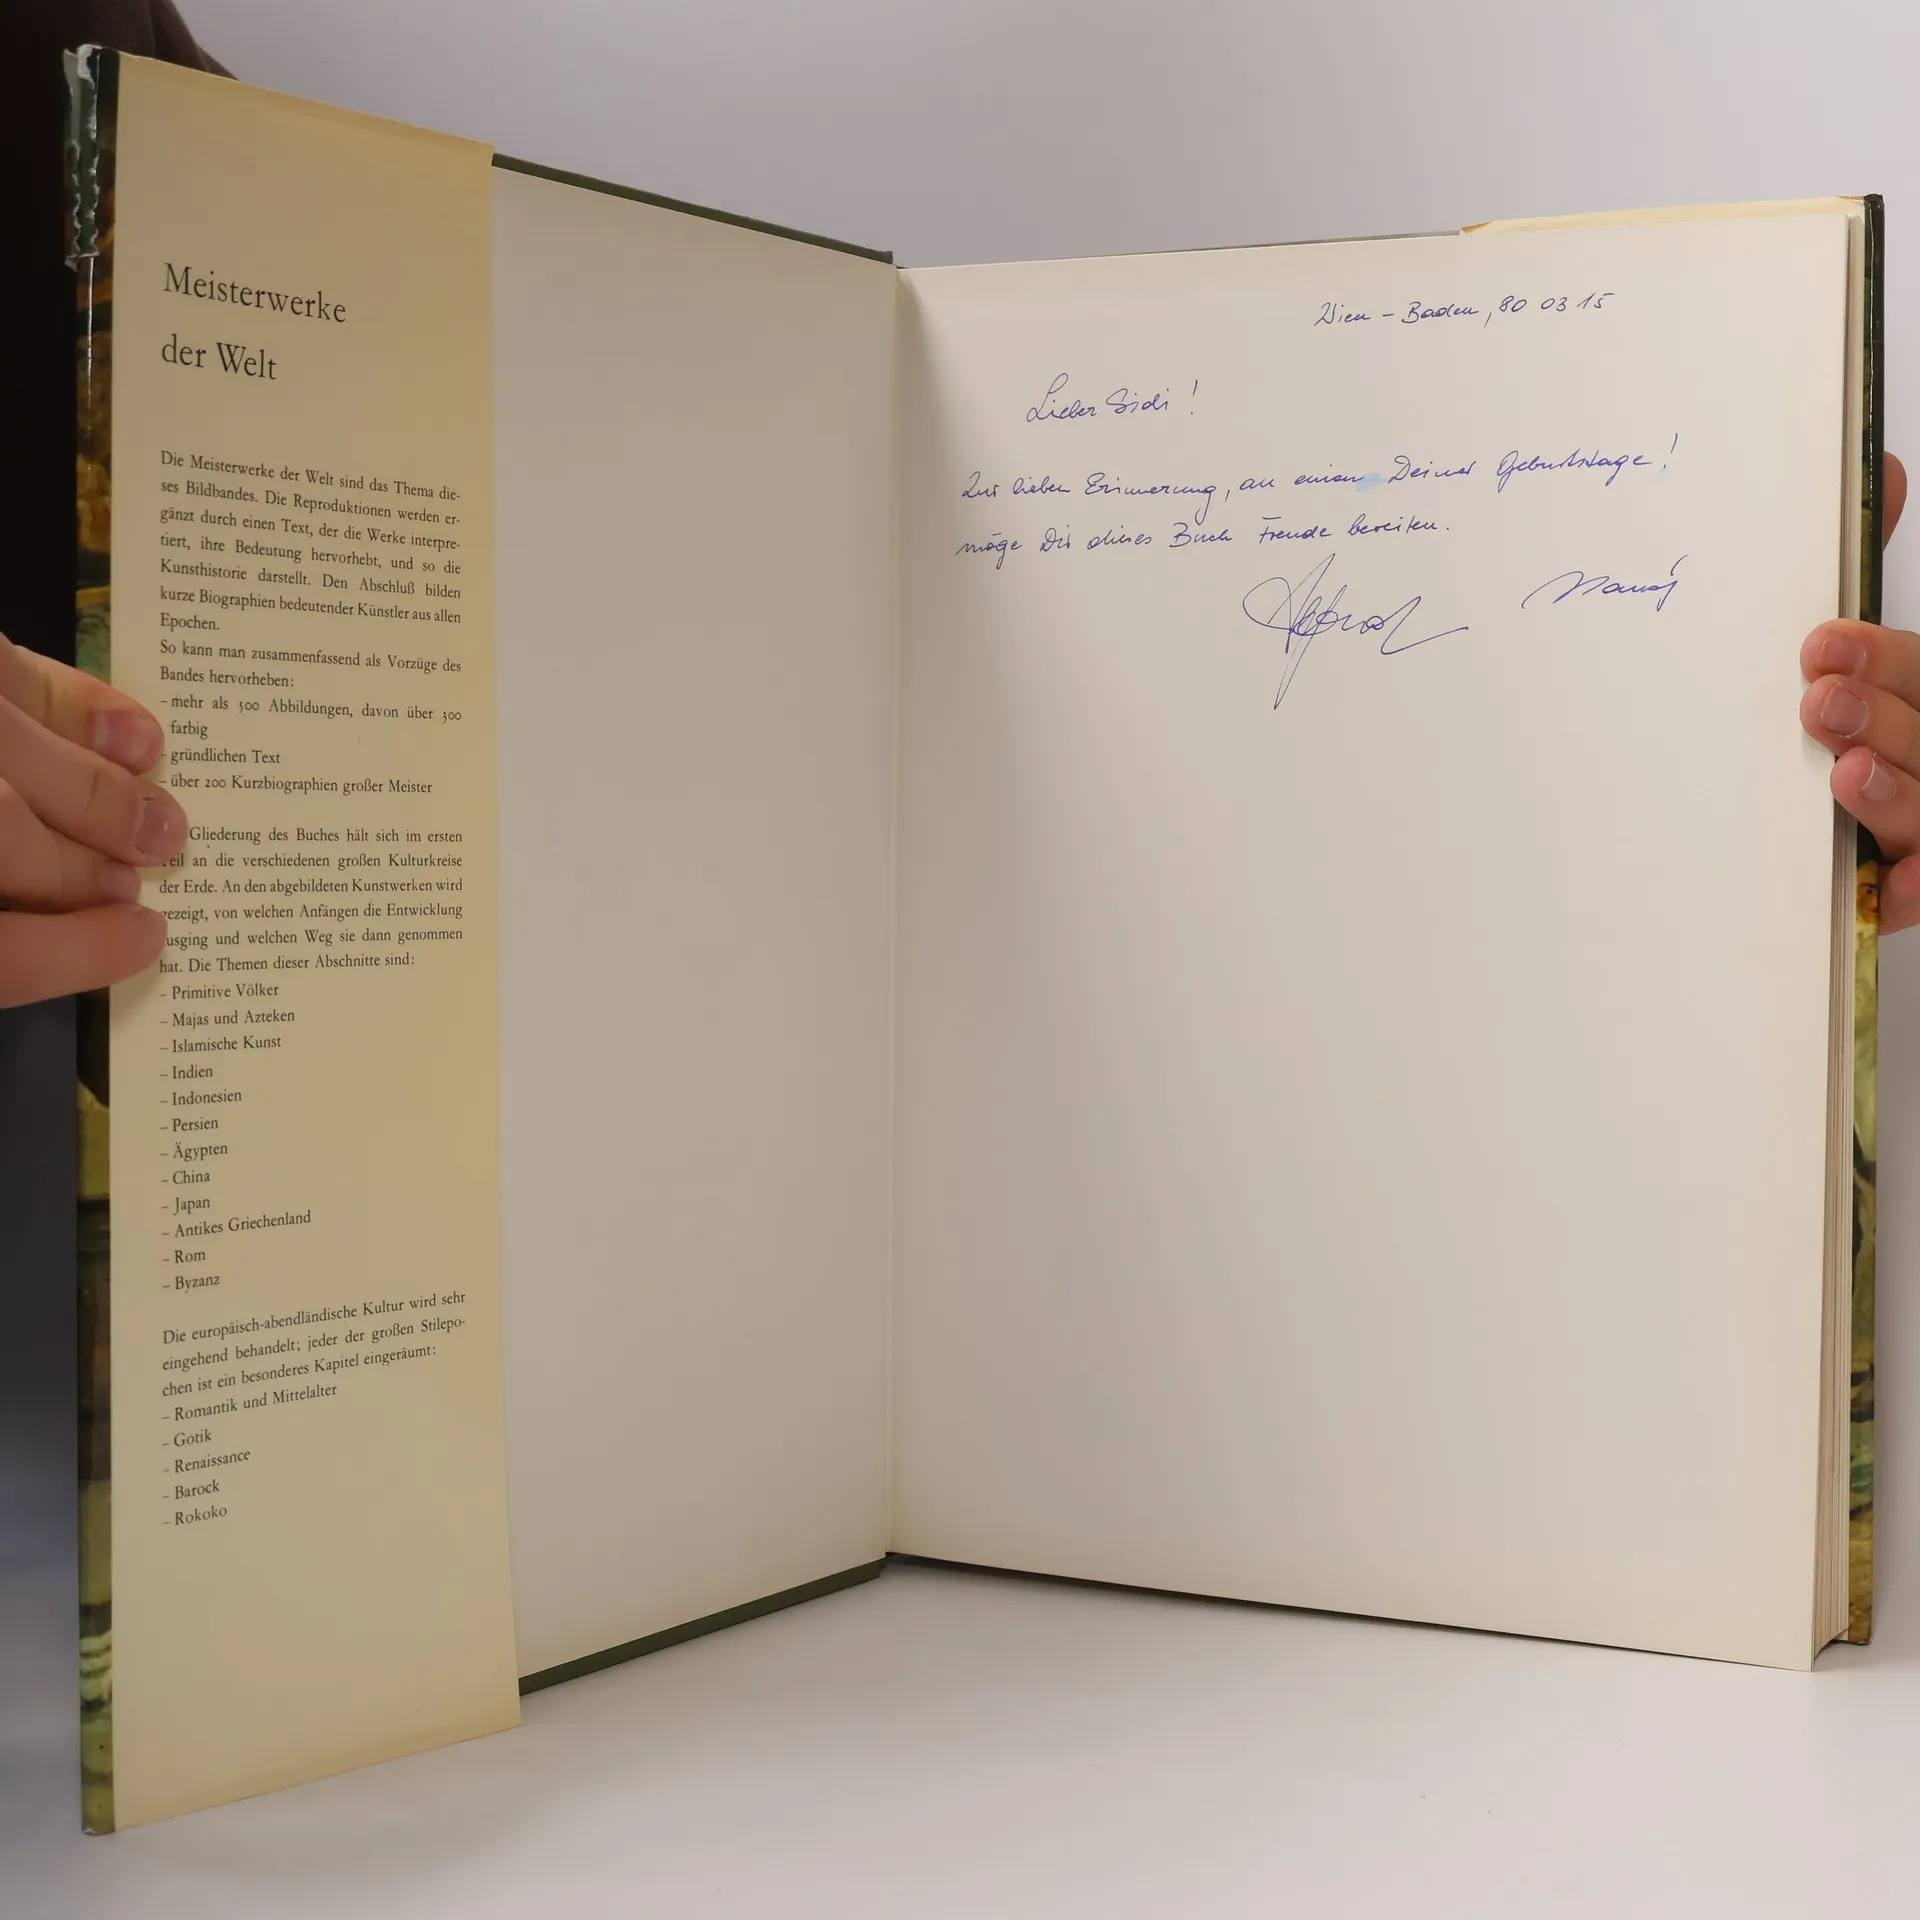 Meisterwerke
der Welt
Die Meisterwerke der Welt sind das Thema die-
ses Bildbandes. Die Reproduktionen werden er-
gänzt durch einen Text, der die Werke interpre-
tiert, ihre Bedeutung hervorhebt, und so die
Kunsthistorie darstellt. Den Abschluß bilden
kurze Biographien bedeutender Künstler aus allen
Epochen.
So kann man zusammenfassend als Vorzüge des
Bandes hervorheben:
– mehr als 500 Abbildungen, davon über 300
farbig
– gründlichen Text
– über 200 Kurzbiographien großer Meister
Gliederung des Buches hält sich im ersten
Teil an die verschiedenen großen Kulturkreise
der Erde. An den abgebildeten Kunstwerken wird
gezeigt, von welchen Anfängen die Entwicklung
ausging und welchen Weg sie dann genommen
hat. Die Themen dieser Abschnitte sind:
– Primitive Völker
– Majas und Azteken
– Islamische Kunst
– Indien
– Indonesien
– Persien
– Ägypten
– China
– Japan
– Antikes Griechenland
– Rom
– Byzanz
Die europäisch-abendländische Kultur wird sehr
eingehend behandelt; jeder der großen Stilepo-
chen ist ein besonderes Kapitel eingeräumt:
– Romantik und Mittelalter
– Gotik
– Renaissance
– Barock
– Rokoko
Wien – Baden, 80 03 15
Lieber Sidi !
Zur lieben Erinnerung, an einen Deiner Geburtstage !
möge Dir dieses Buch Freude bereiten.